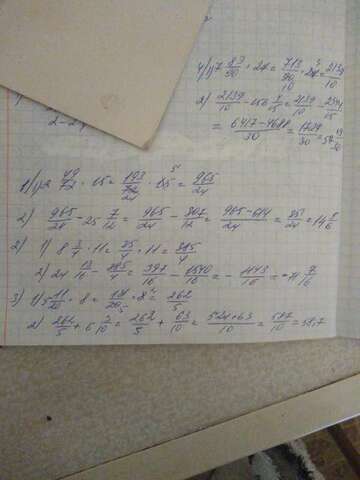 4) 1) 7 23/90 · 27 = 713/90 · 27 = 2139/10
2) 2139/10 - 156 4/15 = 2139/10 - 2344/15
= 6417-4688/30 = 1729/30 = 57 19/30
1) 1) 2 49/72 · 15 = 193/72 · 15 = 965/24
2) 965/24 - 25 7/12 = 965/24 - 307/12 = 965-614/24 = 85/24 = 14 5/6
2) 1) 8 3/4 · 11 = 35/4 · 11 = 385/4
2) 24 13/16 - 385/4 = 397/16 - 1540/16 = - 1143/16 =
3) 1) 5 11/20 · 8 = 131/20 · 8 = 262/5
2) 262/5 + 6 3/10 = 262/5 + 63/10 = 524+63/10 = 587/10 = 58,7